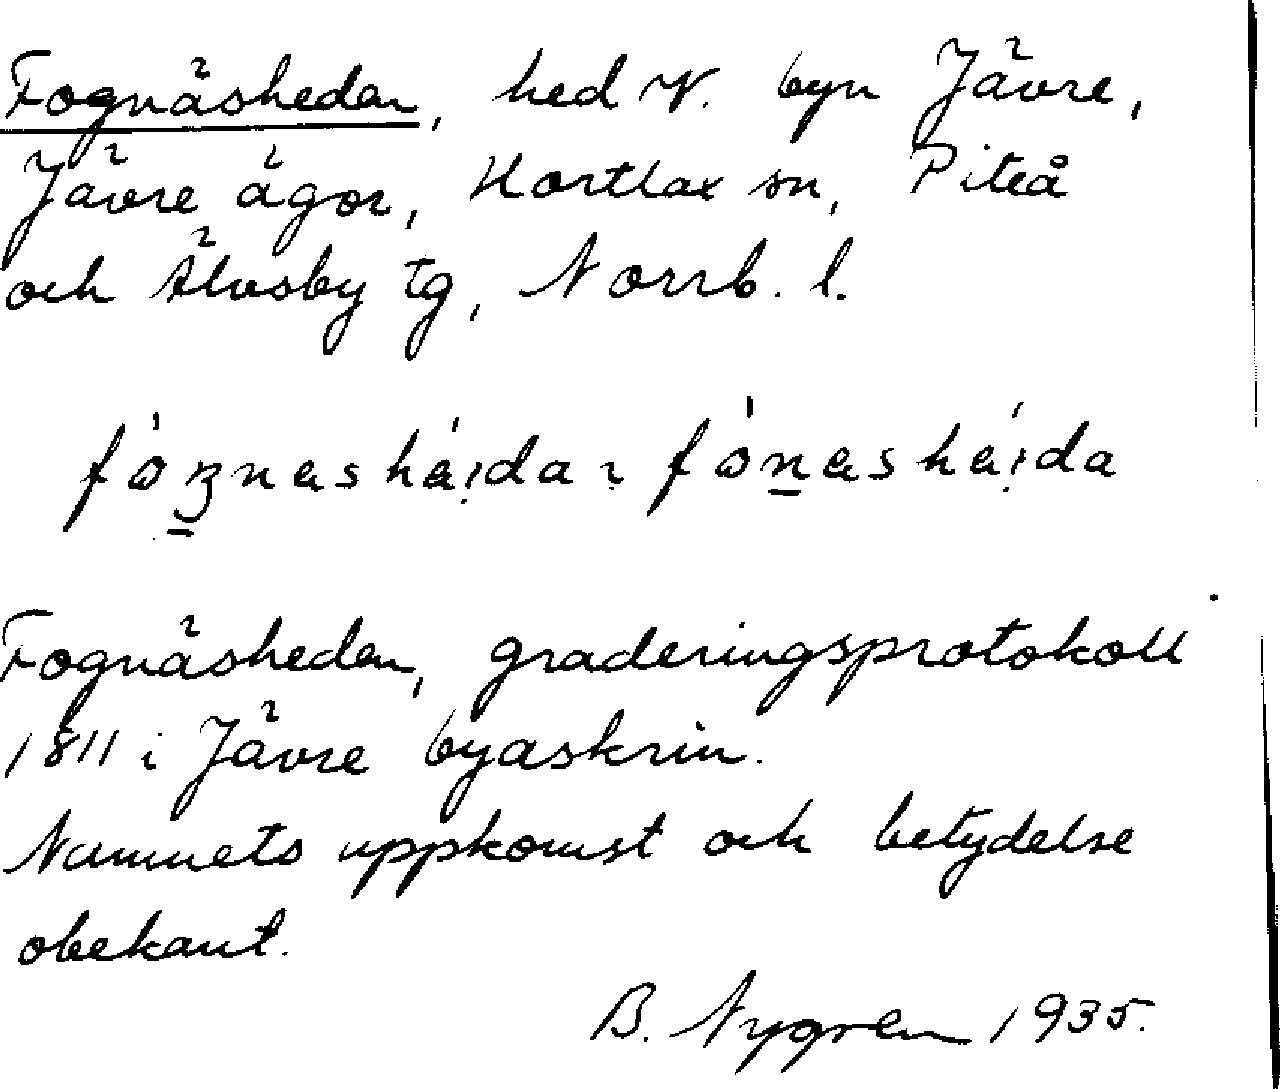 Fognäsheden, hed V. byn Jävre,
Jävre ägor, Hortlax sn, Piteå
och Älvsby tg, Norrb. l.
Fognäsheden, graderingsprotokoll
1811 i Jävre byaskrin.
Namnets uppkomst och betydelse
obekant.
B. Nygren 1935.